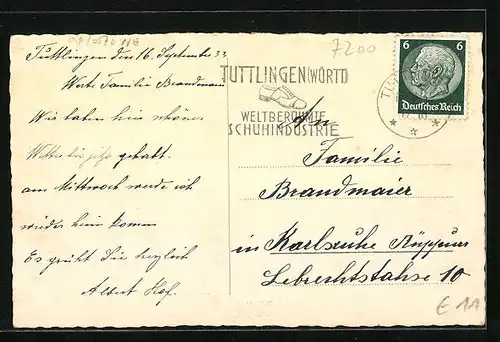 7200
Tuttlingen den 16. September 33
Werte Familie Brandmaier
Wir haben hier schönes
Wetter bis jetzt gehabt.
am Mittwoch werde ich
wieder heim kommen
Es grüßt Sie herzlich
Albert Hof.
TUTTLINGEN (WÜRTT)
WELTBERÜHMTE
SCHUHINDUSTRIE
6 6
Deutsches Reich
An
Familie
Brandmaier
in Karlsruhe Rüppurr
Lebrechtstahse 10
E 11